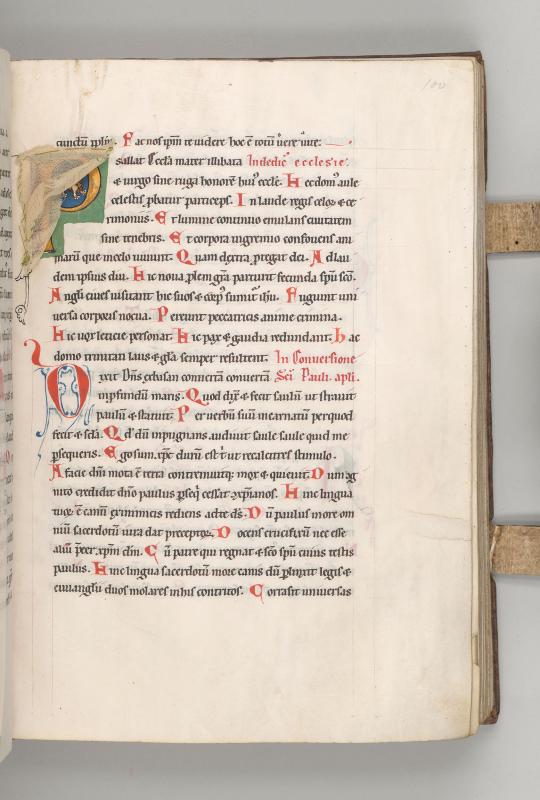 100
cunctū xp̄m. F ac nos ip̄m te uidere hoc ē totū uere uite:
sallat Ecc̄la mater illibata In dedic̄ ecclesie
& uirgo sine ruga honorē hui⁹ eccl̄e. H ec dom⁹ aule
celestis p̄batur particeps. I n laude regis celoꝝ & ce
rimoniis. E t lumine continuo emulans ciuitatem
sine tenebris. E t corpora in gremio confouens ani
marū que in celo uiuunt. Q uam dextra p̄tegat dei. A d lau
dem ipsius diu. H ic noua p̄lem gr̄a parturit fecunda sp̄u sc̄o.
A ngli ciues uisitant hic suos & corp⁹ sumit ihū. F ugiunt uni
uersa corpori nociua. P ereunt peccatricis anime crimina.
H ic uox leticie personat. H ic pax & gaudia redundant. H ac
domo trinitati laus & gl̄a semper resultent. In Conuersione
ixit Dn̄s ex basan conuertā conuertā Sc̄i Pauli apl̄i.
in p̄fundū maris. Q uod dix̄ & fecit saulū ut strauit
paulū & statuit. P er uerbū suū incarnatū per quod
fecit & sc̄la. Q d̄ dū inpugnans audiuit saule saule quid me
p̄sequeris. E go sum xp̄c durū est t̄ ut recalcitres stimulo.
A facie dn̄i mota ē terra contremuitq; mox & quieuit. D um
nito credidit dn̄o paulus p̄seq̄ cessat xp̄ianos. H inc lingua
tuoꝝ ē canū ex inimicis rediens ad te dš. D ū paulus more om
niū sacerdotū iura dat preceptoꝝ. D ocens crucifixū nec esse
aliū p̄ter xp̄m dm̄. C ū patre qui regnat & sc̄o sp̄u cuius testis
paulus. H inc lingua sacerdotū more canis dū p̄linxit legis &
euuangl̄ii duos molares in his contriuit. C orrasit uniuersas